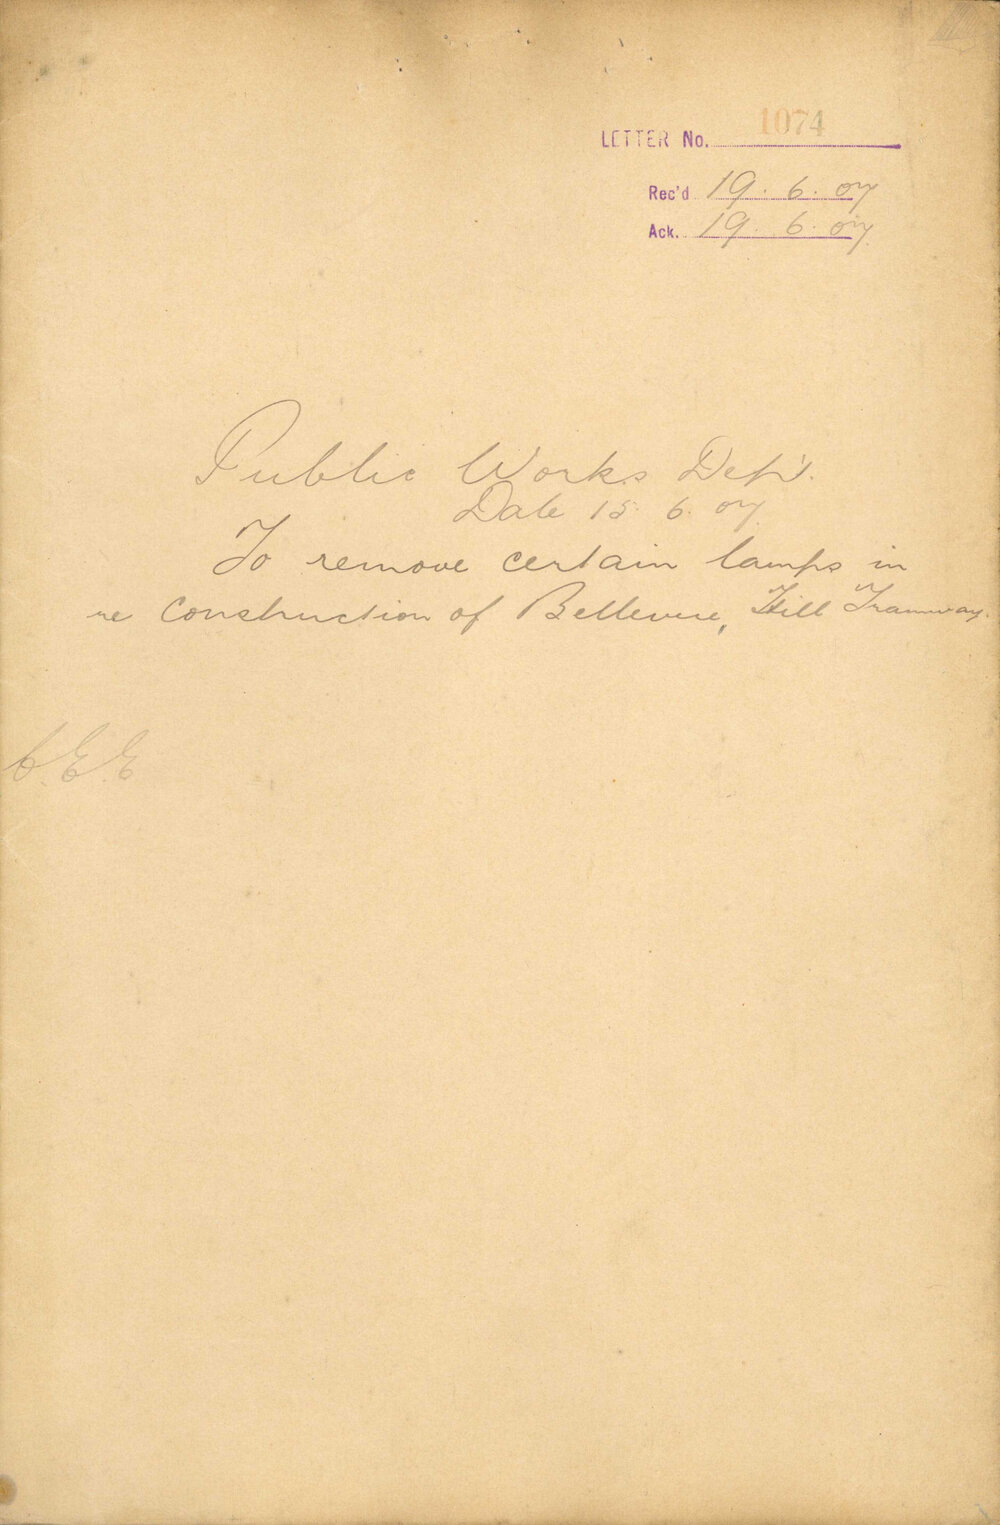 LETTER No. 1074
Rec'd 19. 6. 07
Ack. 19. 6. 07
Public Works Dep't.
Date 15. 6. 07
To remove certain lamps in
re construction of Bellevue, Hill Tramway.
C.E.E